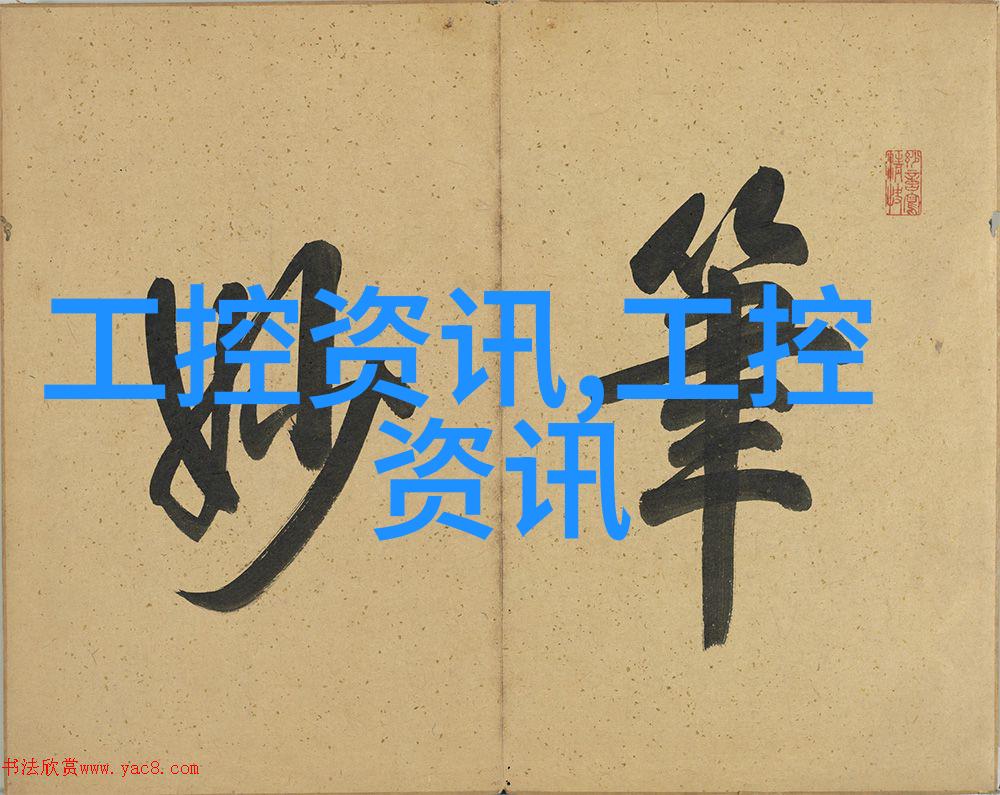 工控资讯,工控
资讯
筆
妙
书法欣赏www.yac8.com